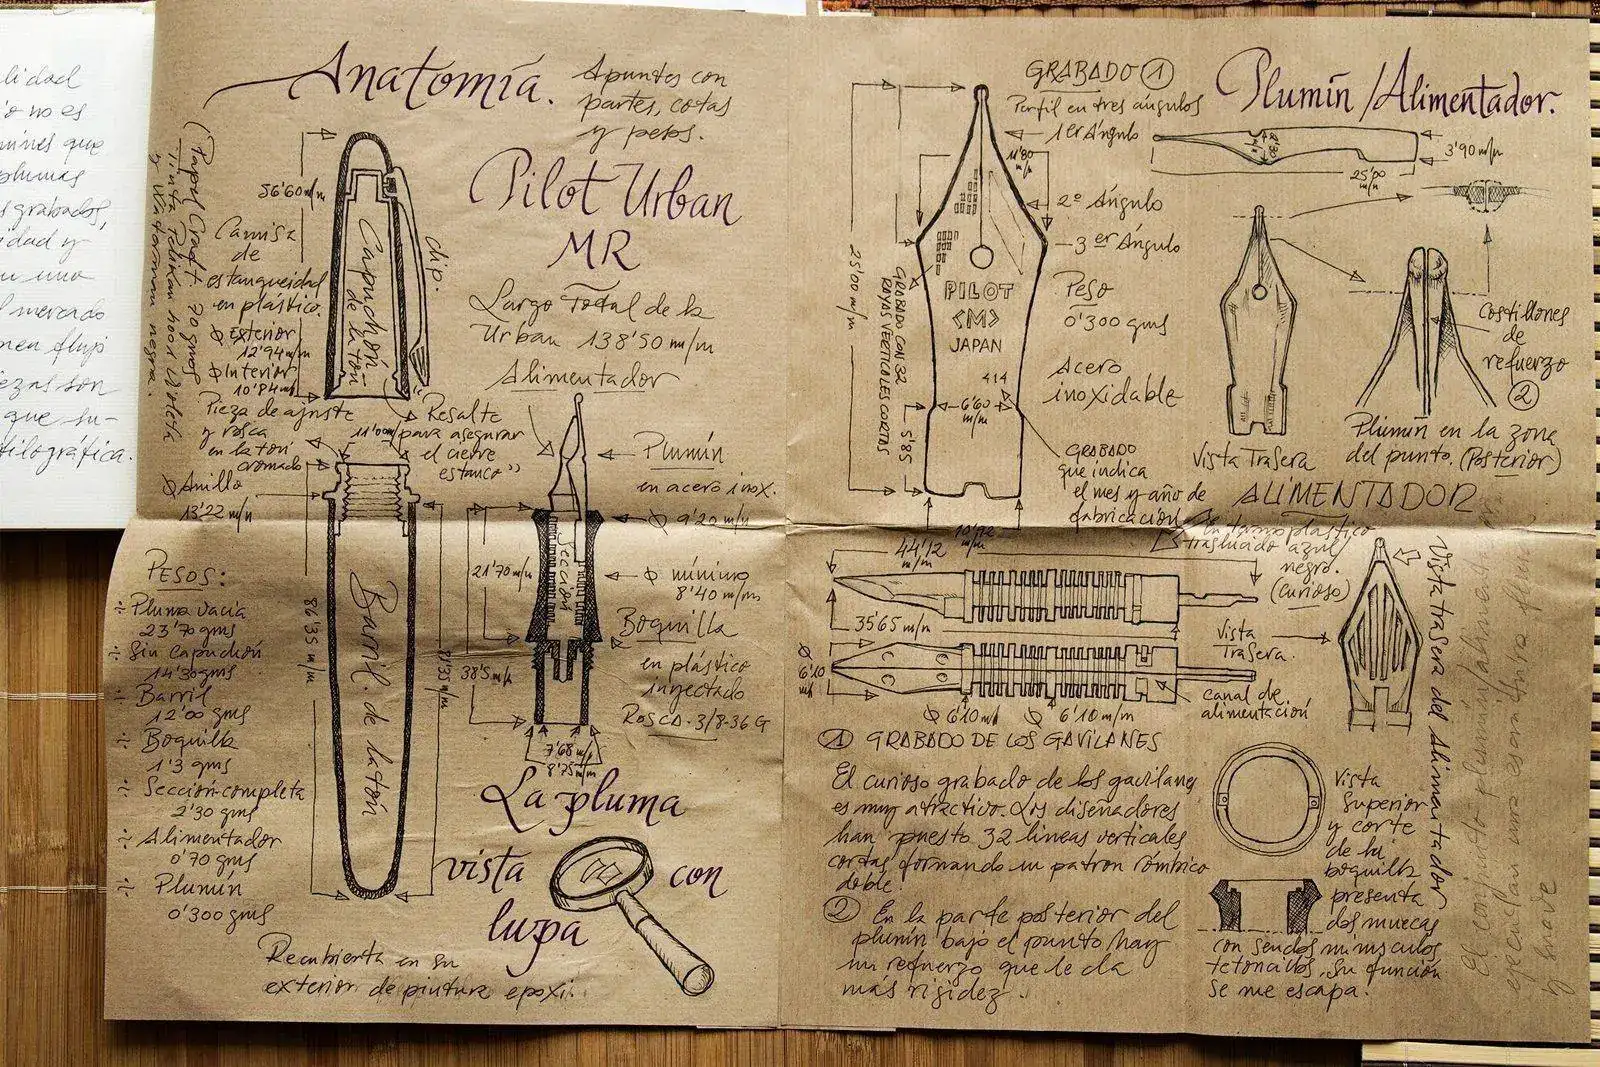 lidad
o no es
mines que
plumas
s grabados,
dad y
en una
l mercado
nen flujo
ezas son
que su-
tilográfica.
Anatomía.
Apuntes con
partes, cotas
y pesos.
(Papel Craft 70 gms
tinta Pelikan 4001 violeta
y Waterman negra.
Pilot Urban
MR
Largo Total de la
Urban 138'50 m/m
Alimentador
56'60 m/m
Camisa
de
estanqueidad
en plástico.
Ø Exterior
12'94 m/m
Ø Interior
10'84 m/m
Capuchón
de latón
clip.
Pieza de ajuste
y rosca
en latón
cromado
11'00 m/m
Resalte
para asegurar
el cierre
estanco"
Ø Anillo
13'22 m/m
Plumín
en acero inox.
Ø 9'20 m/m
Sección
21'70 m/m
Ø mínimo
8'40 m/m
Boquilla
en plástico
inyectado
Rosca-3/8-36 G
38'5 m/m
7'68 m/m
8'75 m/m
86'35 m/m
Barril de latón
PESOS:
Pluma vacía
23'70 gms
Sin capuchón
14'30 gms
Barril
12'00 gms
Boquilla
1'3 gms
Sección completa
2'30 gms
Alimentador
0'70 gms
Plumín
0'300 gms
La pluma
vista con
lupa
Recubierta en su
exterior de pintura epoxi.
GRABADO 1
Perfil en tres ángulos
1er Ángulo
2º Ángulo
3er Ángulo
11'80 m/m
25'00 m/m
GRABADO CON 32
RAYAS VERTICALES CORTAS
PILOT
<M>
JAPAN
414
6'60 m/m
5'85
Peso
0'300 gms
Acero
inoxidable
GRABADO
que indica
el mes y año de
fabricación
Plumín/Alimentador.
3'90 m/m
25'00 m/m
Vista Trasera
Costillones
de
refuerzo
2
Plumín en la zona
del punto. (Posterior)
ALIMENTADOR
En termoplástico
traslúcido azul
negro.
(curioso)
44'12 m/m
35'65 m/m
Ø 6'10 m/m
Ø 6'10 m/m
Ø 6'10 m/m
Vista
Trasera.
canal de
alimentación
Vista trasera del alimentador
1 GRABADO DE LOS GAVILANES
El curioso grabado de los gavilanes
es muy atractivo. Los diseñadores
han puesto 32 lineas verticales
cortas formando un patron rómbico
doble.
2 En la parte posterior del
plumín bajo el punto hay
un refuerzo que le da
más rigidez.
Vista
Superior
y corte
de la
boquilla
presenta
dos muecas
con sendos minusculos
tetoncillos. Su función
se me escapa.
El conjunto plumín/alimentador
y suave